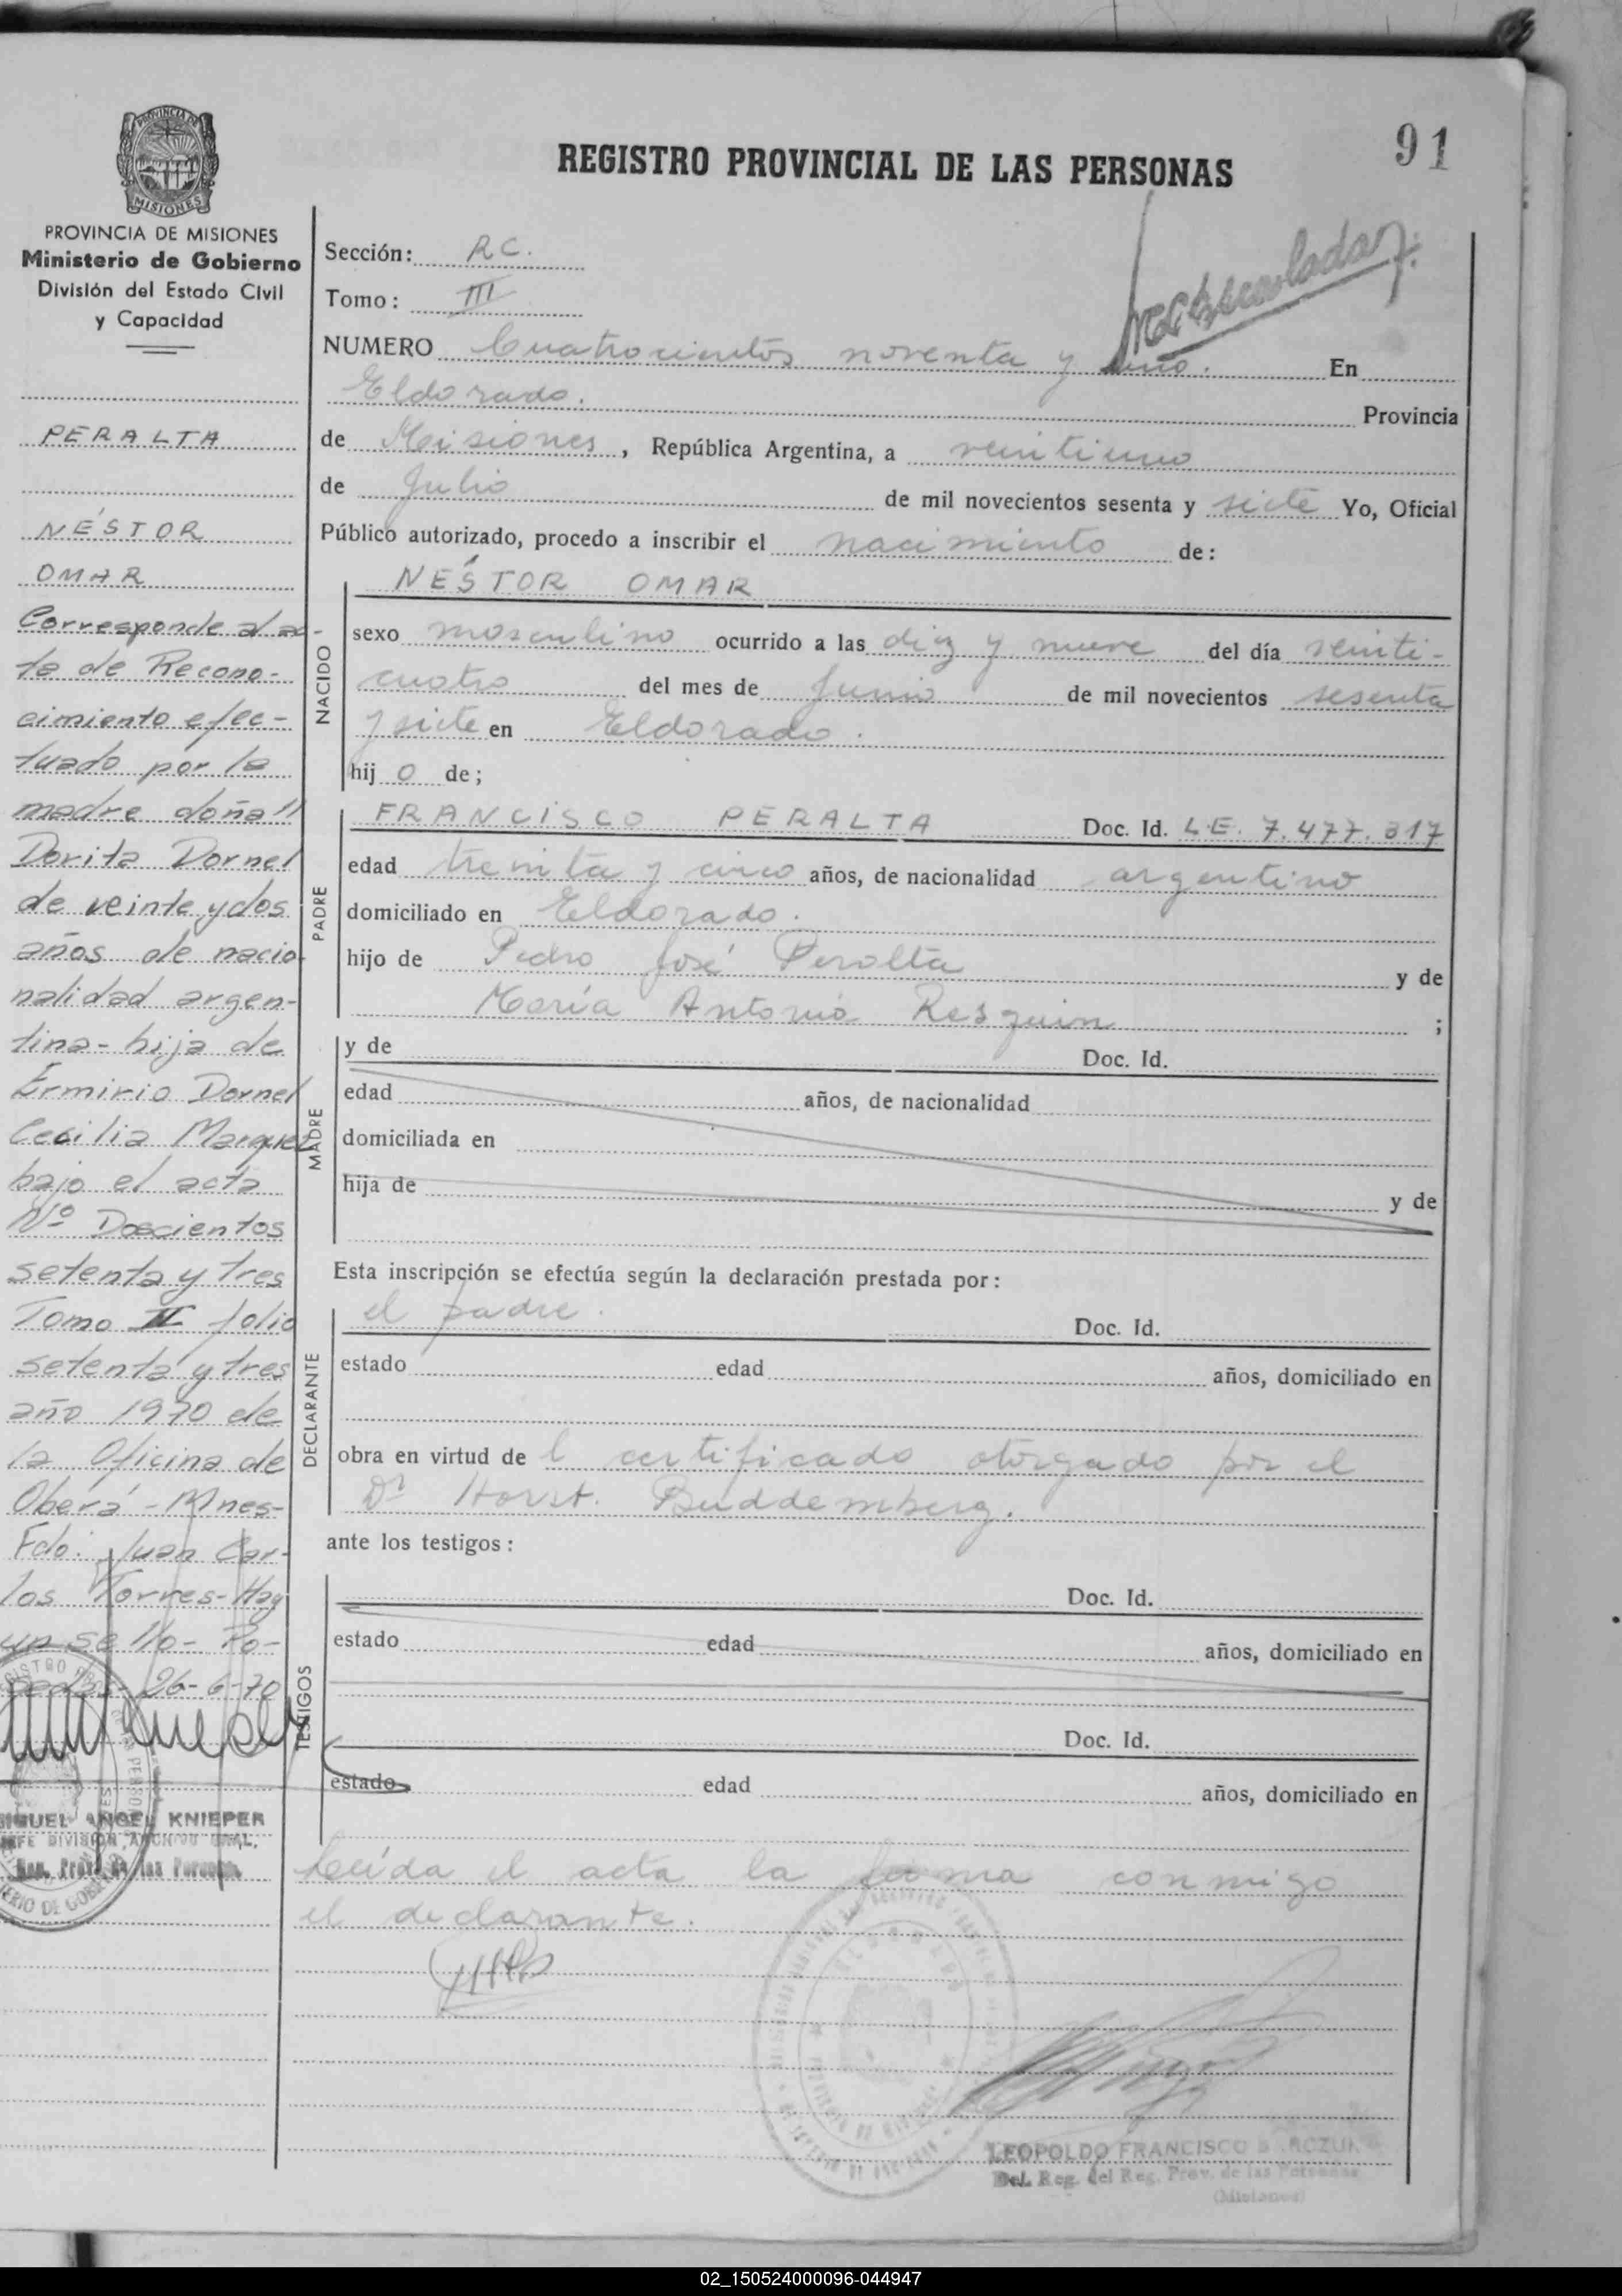 91
REGISTRO PROVINCIAL DE LAS PERSONAS
PROVINCIA DE MISIONES
PROVINCIA DE MISIONES
Ministerio de Gobierno
División del Estado Civil
y Capacidad
PERALTA
NÉSTOR
OMAR
Corresponde al ac-
ta de Recono-
cimiento efec-
tuado por la
madre doña "
Dorita Dornel
de veinte y dos
años de nacio
nalidad argen-
tina - hija de
Ermirio Dornel
Cecilia Marquez
bajo el acta
Nº Doscientos
setenta y tres
Tomo II folio
setenta y tres
año 1970 de
la Oficina de
Oberá - Mnes-
Fdo: Juan Car-
los Torres - Hay
un sello - Po-
sadas - 26-6-70
MIGUEL ANGEL KNIEPER
JEFE DIVISION ARCHIVO GRAL.
Reg. Prov. de las Personas
Sección: RC.
Tomo: III
NUMERO Cuatrocientos noventa y uno. En
Eldorado. Provincia
de Misiones, República Argentina, a veintiuno
de Julio de mil novecientos sesenta y siete Yo, Oficial
Público autorizado, procedo a inscribir el nacimiento de:
NÉSTOR OMAR
NACIDO
sexo masculino ocurrido a las diez y nueve del día veinti-
cuatro del mes de Junio de mil novecientos sesenta
y siete en Eldorado.
hij o de;
PADRE
FRANCISCO PERALTA Doc. Id. L.E. 7.477.317
edad treinta y cinco años, de nacionalidad argentino
domiciliado en Eldorado.
hijo de Pedro José Peralta y de
María Antonia Resquin ;
MADRE
y de Doc. Id.
edad años, de nacionalidad
domiciliada en
hija de y de
Esta inscripción se efectúa según la declaración prestada por:
DECLARANTE
el padre. Doc. Id.
estado edad años, domiciliado en
obra en virtud de l certificado otorgado por el
Dr Horst. Buddemberg.
ante los testigos:
TESTIGOS
Doc. Id.
estado edad años, domiciliado en
Doc. Id.
estado edad años, domiciliado en
Leída el acta la firma conmigo
el declarante.
LEOPOLDO FRANCISCO
Del. Reg. del Reg. Prov. de las Personas
(Misiones)
02_150524000096-044947